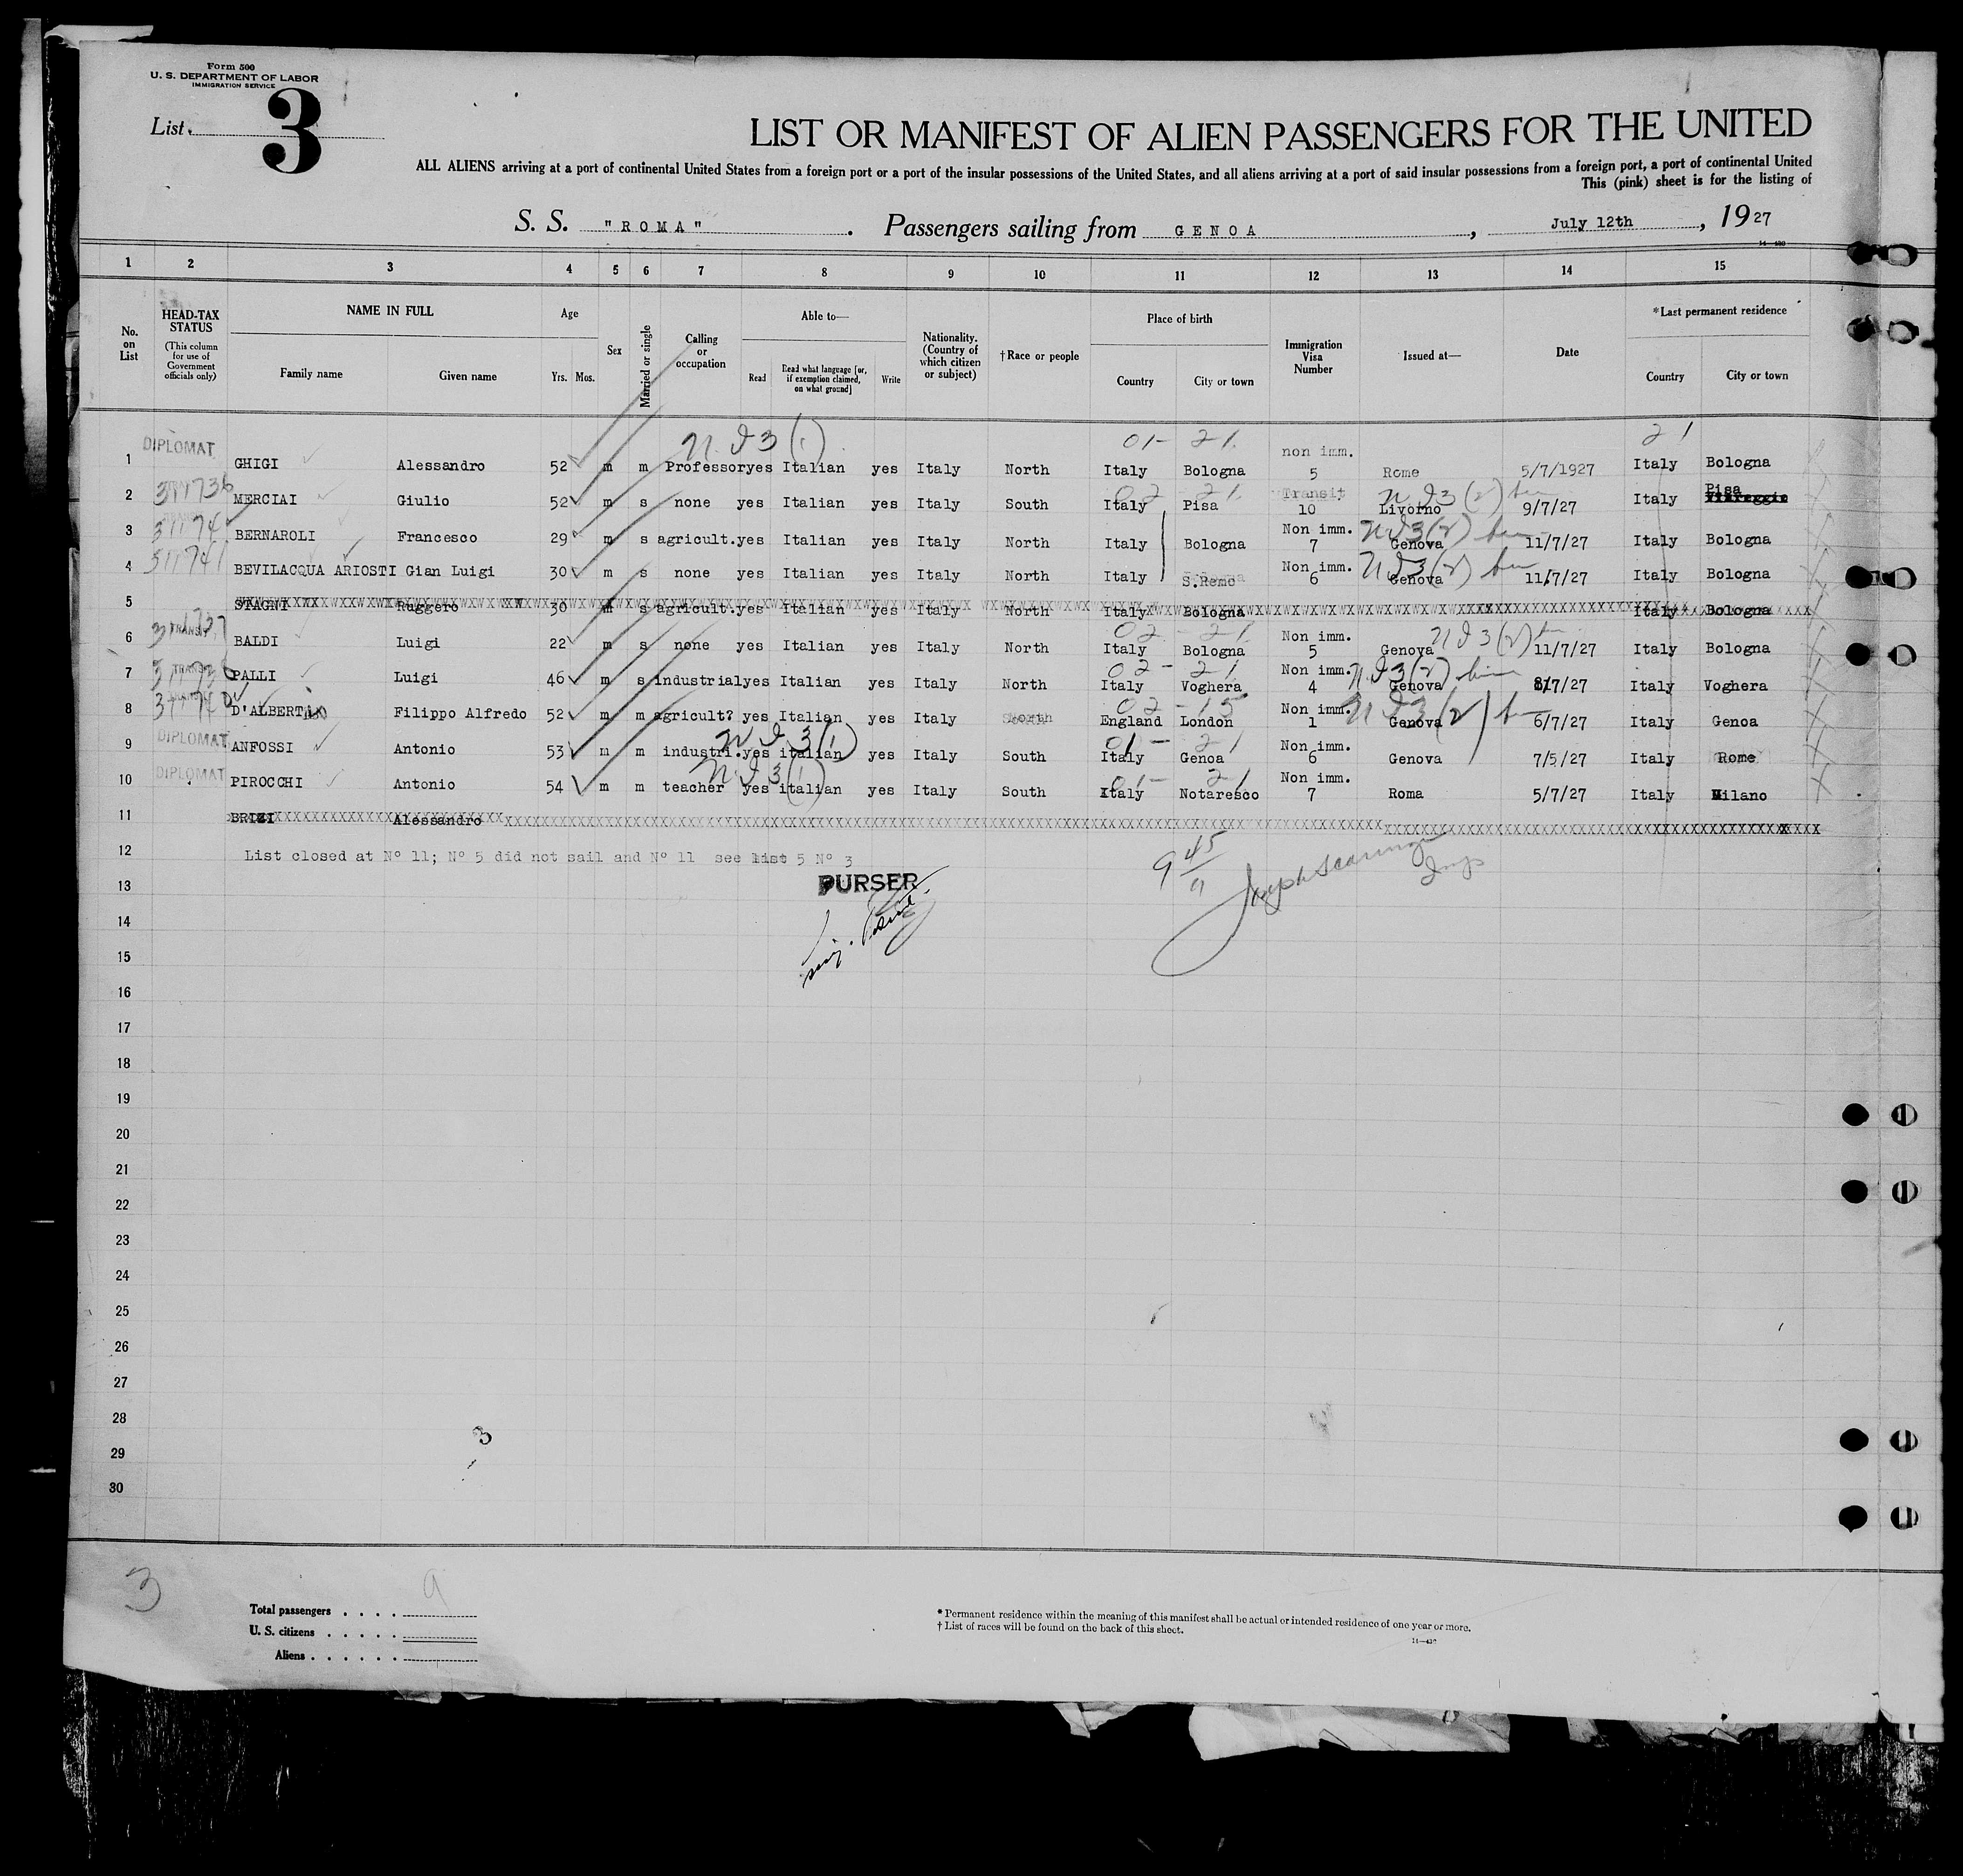 Form 500
U. S. DEPARTMENT OF LABOR
IMMIGRATION SERVICE
List 3
LIST OR MANIFEST OF ALIEN PASSENGERS FOR THE UNITED
ALL ALIENS arriving at a port of continental United States from a foreign port or a port of the insular possessions of the United States, and all aliens arriving at a port of said insular possessions from a foreign port, a port of continental United
This (pink) sheet is for the listing of
S. S. "ROMA". Passengers sailing from GENOA, July 12th, 1927
1 2 3 4 5 6 7 8 9 10 11 12 13 14 15
No. on List
HEAD-TAX STATUS (This column for use of Government officials only)
NAME IN FULL
Family name Given name
Age
Yrs. Mos.
Sex
Married or single
Calling or occupation
Able to—
Read Read what language [or, if exemption claimed, on what ground] Write
Nationality. (Country of which citizen or subject)
†Race or people
Place of birth
Country City or town
Immigration Visa Number
Issued at—
Date
*Last permanent residence
Country City or town
DIPLOMAT N. I 3 (1) 01- 21. non imm. 21
1 GHIGI Alessandro 52 m m Professor yes Italian yes Italy North Italy Bologna 5 Rome 5/7/1927 Italy Bologna
2 MERCIAI Giulio 52 m s none yes Italian yes Italy South Italy Pisa Transit 10 Livorno 9/7/27 Italy Pisa
3 BERNAROLI Francesco 29 m s agricult. yes Italian yes Italy North Italy Bologna Non imm. 7 Genova 11/7/27 Italy Bologna
4 BEVILACQUA ARIOSTI Gian Luigi 30 m s none yes Italian yes Italy North Italy S.Remo Non imm. 6 Genova 11/7/27 Italy Bologna
5 STAGNI Ruggero 30 m s agricult. yes Italian yes Italy North Italy Bologna Italy Bologna
6 BALDI Luigi 22 m s none yes Italian yes Italy North Italy Bologna Non imm. 5 Genova 11/7/27 Italy Bologna
7 PALLI Luigi 46 m s industrial yes Italian yes Italy North Italy Voghera Non imm. 4 Genova 8/7/27 Italy Voghera
8 D'ALBERTIS Filippo Alfredo 52 m m agricult? yes Italian yes Italy North England London Non imm. 1 Genova 6/7/27 Italy Genoa
DIPLOMAT
9 ANFOSSI Antonio 53 m m industri. yes italian yes Italy South Italy Genoa Non imm. 6 Genova 7/5/27 Italy Rome
DIPLOMAT
10 PIROCCHI Antonio 54 m m teacher yes italian yes Italy South Italy Notaresco Non imm. 7 Roma 5/7/27 Italy Milano
11 BRIZI Alessandro
12 List closed at N° 11; N° 5 did not sail and N° 11 see list 5 N° 3
13 PURSER
14
15
16
17
18
19
20
21
22
23
24
25
26
27
28
29
30
3
3
Total passengers . . . . 9
U. S. citizens . . . . .
Aliens . . . . . .
* Permanent residence within the meaning of this manifest shall be actual or intended residence of one year or more.
† List of races will be found on the back of this sheet.